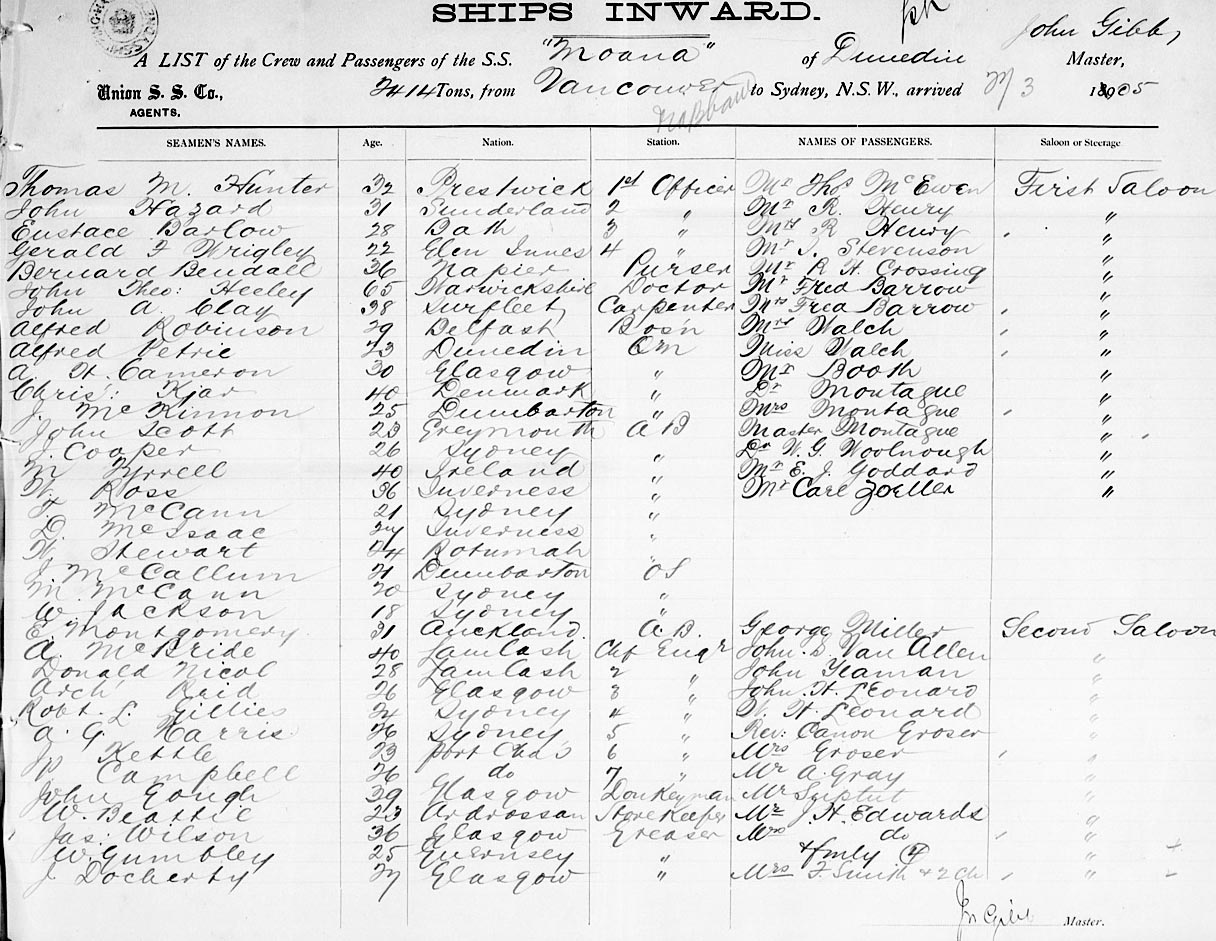 SHIPS INWARD.
John Gibb,
A LIST of the Crew and Passengers of the S.S. "Moana" of Dunedin Master,
Union S. S. Co., 2414 Tons, from Vancouver to Sydney, N.S.W., arrived 27/3 1905
AGENTS.
SEAMEN'S NAMES. Age. Nation. Station. NAMES OF PASSENGERS. Saloon or Steerage
Thomas M. Hunter 32 Prestwick 1st Officer Mr Thos McEwen First Saloon
John Hazard 31 Sunderland 2 " Mr R. Henry "
Eustace Barlow 28 Bath 3 " Mrs R Henry "
Gerald F Wrigley 22 Glen Innes 4 " Mr S. Stevenson "
Bernard Bendall 36 Napier Purser Mr R H Crossing "
John Theo: Heeley 65 Warwickshire Doctor Mr Fred Barrow "
John A. Clay 38 Surfleet Carpenter Mrs Fred Barrow "
Alfred Robinson 29 Belfast Bos'n Mrs Walch "
Alfred Petrie 23 Dunedin Qm Miss Walch "
A. H. Cameron 30 Glasgow " Mr Booth "
Chris: Kjar 40 Denmark " Dr Montague "
J. McKinnon 25 Dumbarton " Mrs Montague "
John Scott 23 Greymouth AB Master Montague "
J. Cooper 26 Sydney " Dr W. G. Woolnough "
M Tyrrell 40 Ireland " Mr E. J. Goddard "
W. Ross 36 Inverness " Mr Carl Zoeller "
F. McCann 21 Sydney "
D. McIsaac 27 Inverness "
W. Stewart 44 Rotumah "
J. McCallum 21 Dumbarton OS
M. McCann 20 Sydney "
W. Jackson 18 Sydney "
E. Montgomery 31 Auckland A.B. George Miller Second Saloon
A. McBride 40 Lamlash Chf Engr John S. Van Allen "
Donald Nicol 28 Lamlash 2 " John Yeaman "
Arch Reid 26 Glasgow 3 " John H. Leonard "
Robt. L. Gillies 24 Sydney 4 " W. H. Leonard "
A. G. Harris 26 Sydney 5 " Rev: Canon Groser "
J. Kettle 23 Port Chas 6 " Mrs Groser "
Campbell 26 do 7 " Mr A. Gray "
John Gough 39 Glasgow Donkeyman Mr "
W. Beattie 23 Ardrossan Storekeeper Mr J. H. Edwards "
Jas: Wilson 36 Glasgow Greaser Mrs do "
W. Gumbley 25 Guernsey " + fmly (4) "
J Docherty 27 Glasgow " Mrs F. Smith + 2 ch "
Jn Gibb Master.